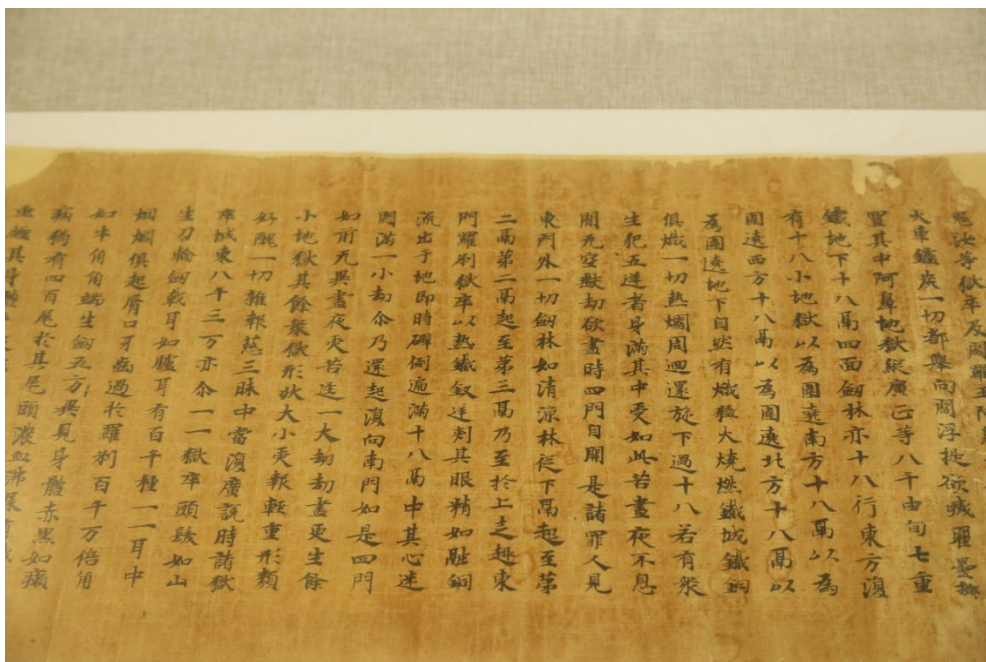 汝等獄卒及閻羅王阿
火車鑪炭一切都舉向閻浮提頃滅羅
置其中阿鼻地獄縱廣正等八千由旬七重
鐵地下十八鬲四面劒林亦十八行東方復
有十八小地獄以為圍遶南方十八鬲以為
圍遶西方十八鬲以為圍遶北方十八鬲以
為圍遶地下自然有熾猛火燒燃鐵城鐵銅
俱熾一切熱爛周迴還旋下過十八若有衆
生犯五逆者身滿其中受如此苦晝夜不息
間无空獸劫欲盡時四門自開是諸罪人見
東門外一切劒林如清凉林從下鬲起至第
二鬲第二鬲起至第三鬲乃至於上走趣東
門羅刹獄卒以熱鐵釵逆刺其眼精如融銅
流出于地即時躃倒遍滿十八鬲中其心迷
悶滿一小劫尒乃還起復向南門如是四門
如前无異晝夜受苦逕一大劫劫盡更生餘
小地獄其餘衆獄形狀大小受報輕重形類
好醜一切雜報慈三昧中當復廣說時諸獄
卒城東八千三万亦尒一一獄卒頭趺如山
生刀輪劒戟耳如驢耳有百千種一一耳中
烟焰俱起脣口牙齒過於羅刹百千万倍角
如牛角角端生劒五万異見身體赤黑如癩
病狗有四百尾於其尾頭濃血沸屎有
虫 其身